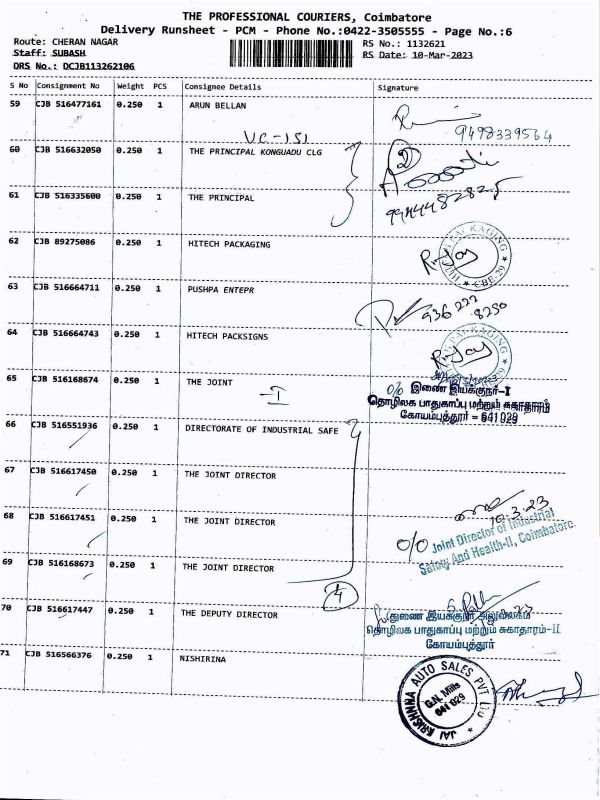 THE PROFESSIONAL COURIERS, Coimbatore
Delivery Runsheet - PCM - Phone No.:0422-3505555 - Page No.:6
Route: CHERAN NAGAR RS No.: 1132621
Staff: SUBASH RS Date: 10-Mar-2023
DRS No.: DCJB113262106
S No Consignment No Weight PCS Consignee Details Signature
59 CJB 516477161 0.250 1 ARUN BELLAN
9498339564
VC-151
60 CJB 516632050 0.250 1 THE PRINCIPAL KONGUADU CLG
2
61 CJB 516335600 0.250 1 THE PRINCIPAL
62 CJB 89275086 0.250 1 HITECH PACKAGING
HITECH PACKAGING * CBE-29 *
63 CJB 516664711 0.250 1 PUSHPA ENTEPR
936 222
8250
64 CJB 516664743 0.250 1 HITECH PACKSIGNS
65 CJB 516168674 0.250 1 THE JOINT
-I
o/o இணை இயக்குநர்-I
தொழிலக பாதுகாப்பு மற்றும் சுகாதாரம்
கோயம்புத்தூர் - 641 029
66 CJB 516551936 0.250 1 DIRECTORATE OF INDUSTRIAL SAFE
67 CJB 516617450 0.250 1 THE JOINT DIRECTOR
10.3.23
68 CJB 516617451 0.250 1 THE JOINT DIRECTOR
o/o Joint Director of Industrial
Safety And Health-II, Coimbatore.
69 CJB 516168673 0.250 1 THE JOINT DIRECTOR
4
70 CJB 516617447 0.250 1 THE DEPUTY DIRECTOR
துணை இயக்குநர் அலுவலகம்
தொழிலக பாதுகாப்பு மற்றும் சுகாதாரம்-II
கோயம்புத்தூர்
71 CJB 516566376 0.250 1 NISHIRINA
JAI KRISHNNA AUTO SALES PVT LTD
G.N. Mills
641 029